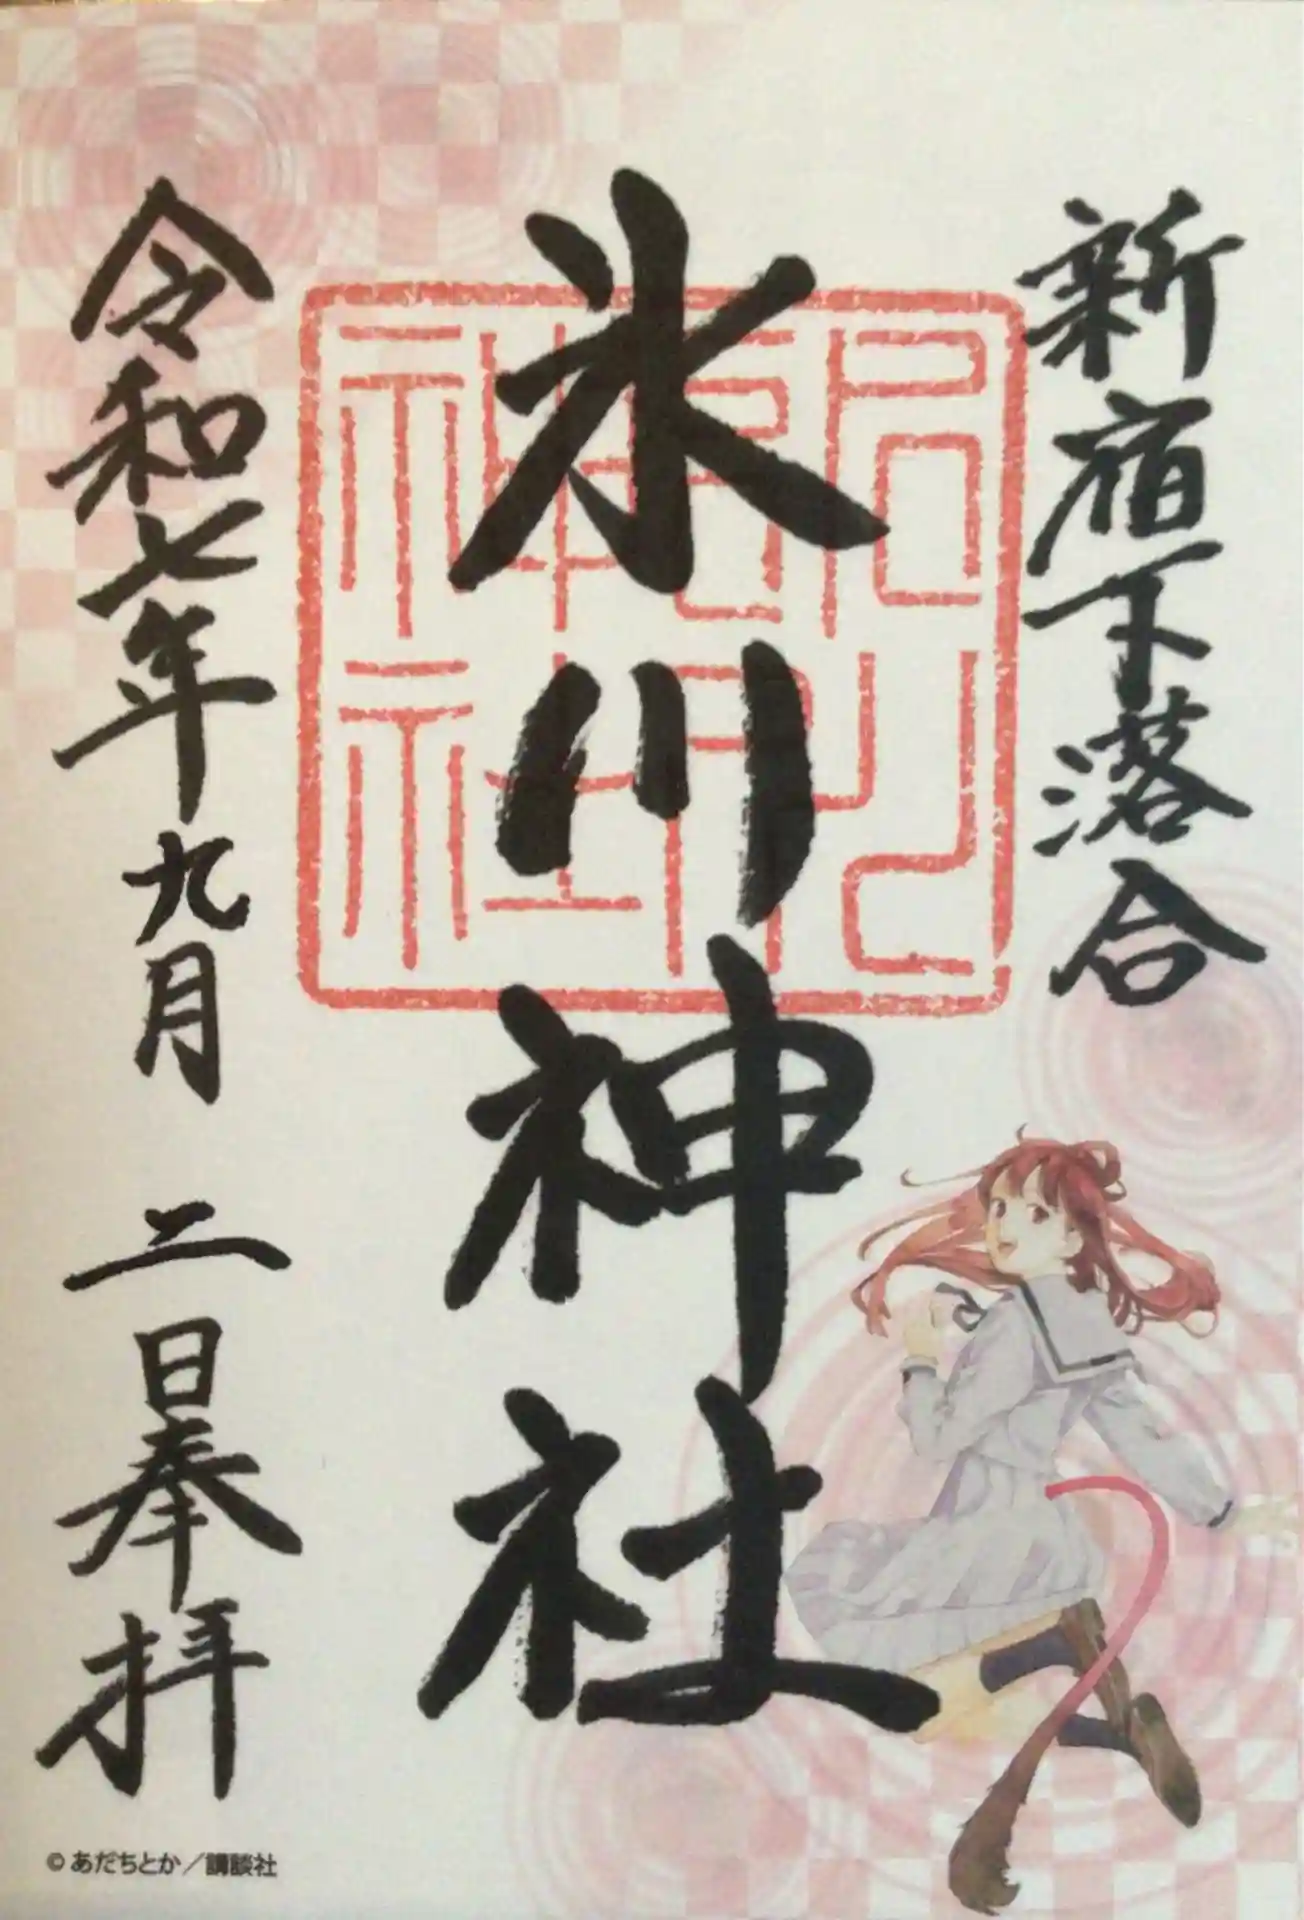 新宿下落合
氷川神社
令和七年九月二日奉拝
© あだちとか／講談社